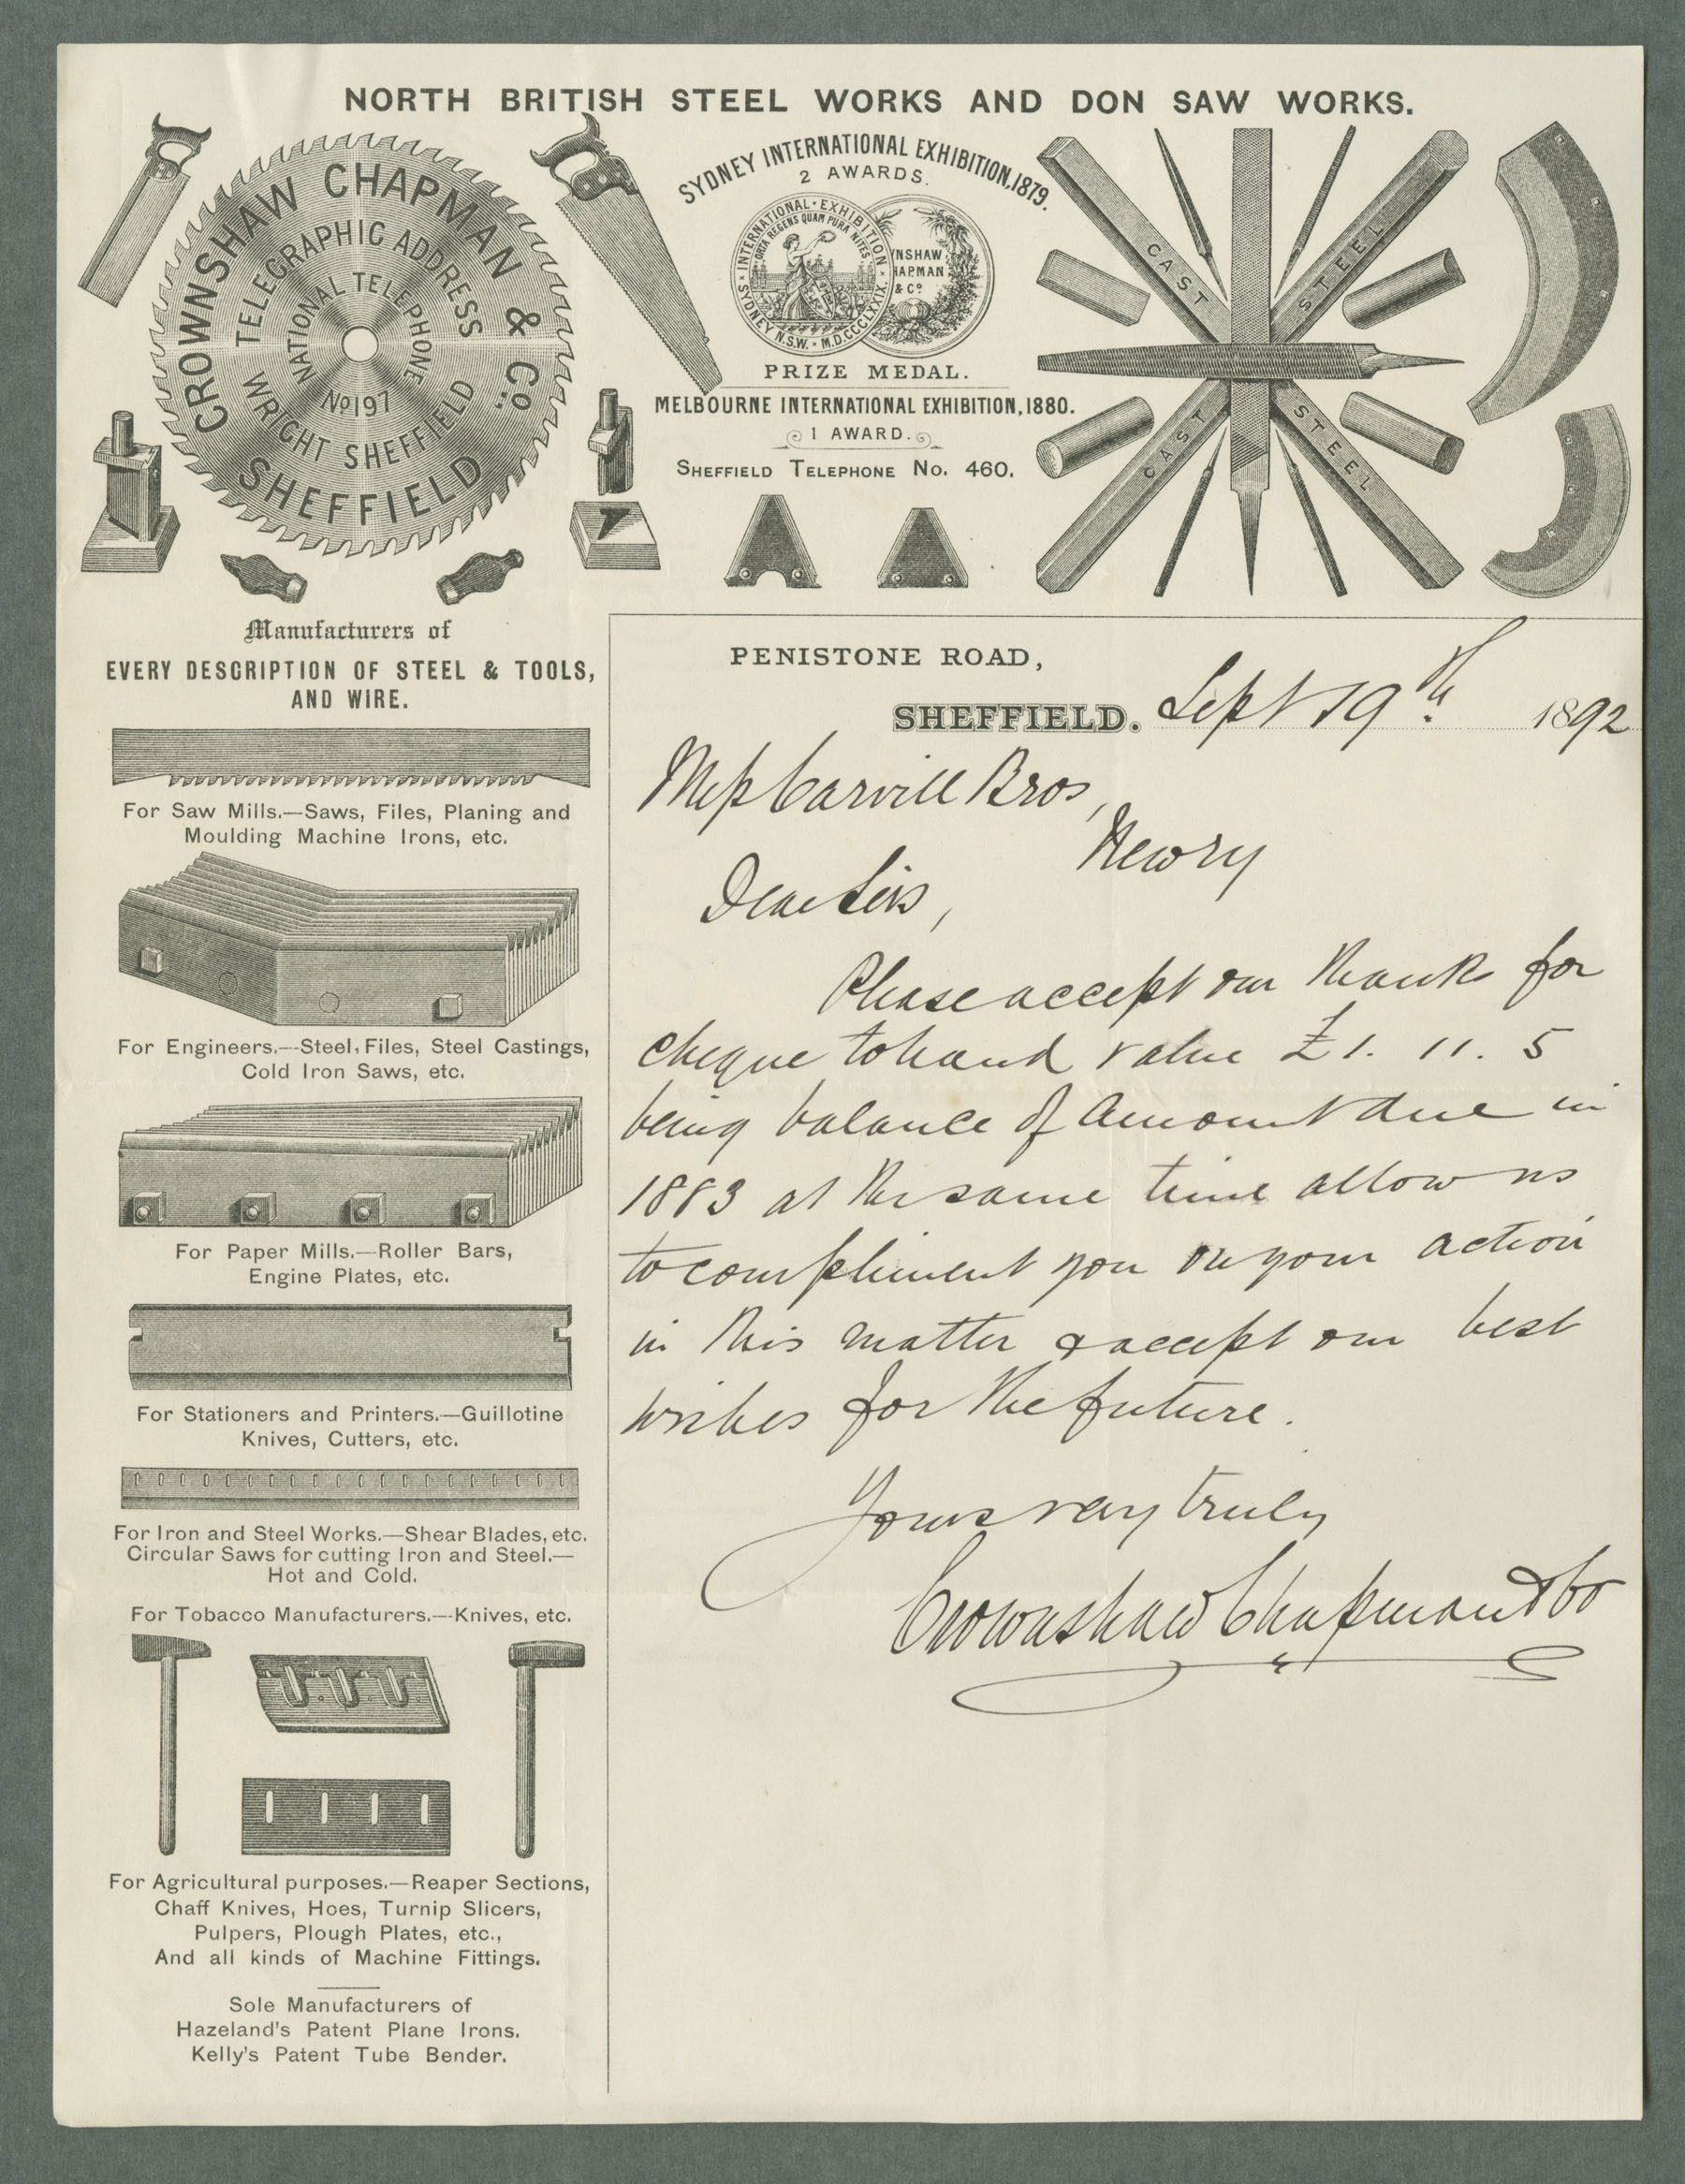 NORTH BRITISH STEEL WORKS AND DON SAW WORKS.
CROWNSHAW CHAPMAN & Co.,
TELEGRAPHIC ADDRESS
NATIONAL TELEPHONE
No 197
WRIGHT SHEFFIELD
SHEFFIELD
SYDNEY INTERNATIONAL EXHIBITION, 1879.
2 AWARDS.
INTERNATIONAL · EXHIBITION
ORTA REGENS QUAM PURA NITES
SYDNEY N.S.W. · M.D.CCCLXXIX.
NSHAW
HAPMAN
& Co
PRIZE MEDAL.
MELBOURNE INTERNATIONAL EXHIBITION, 1880.
1 AWARD.
SHEFFIELD TELEPHONE No. 460.
CAST STEEL
CAST STEEL
Manufacturers of
EVERY DESCRIPTION OF STEEL & TOOLS,
AND WIRE.
For Saw Mills.—Saws, Files, Planing and
Moulding Machine Irons, etc.
For Engineers.—Steel, Files, Steel Castings,
Cold Iron Saws, etc.
For Paper Mills.—Roller Bars,
Engine Plates, etc.
For Stationers and Printers.—Guillotine
Knives, Cutters, etc.
For Iron and Steel Works.—Shear Blades, etc.
Circular Saws for cutting Iron and Steel.—
Hot and Cold.
For Tobacco Manufacturers.—Knives, etc.
For Agricultural purposes.—Reaper Sections,
Chaff Knives, Hoes, Turnip Slicers,
Pulpers, Plough Plates, etc.,
And all kinds of Machine Fittings.
Sole Manufacturers of
Hazeland's Patent Plane Irons.
Kelly's Patent Tube Bender.
PENISTONE ROAD,
SHEFFIELD. Sept 19th 1892
Messs Carvill Bros,
Newry
Dear Sirs,
Please accept our thanks for
cheque to hand value £1. 11. 5
being balance of amount due in
1883 at the same time allow us
to compliment you on your action
in this matter & accept our best
wishes for the future.
Yours very truly
Crownshaw Chapman & Co